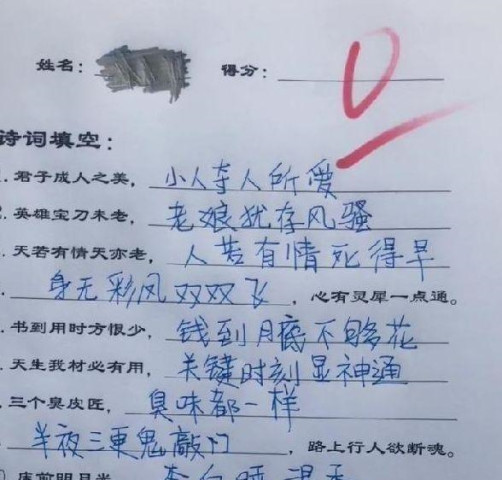 姓名：
得分： 0
诗词填空：
君子成人之美，小人夺人所爱
英雄宝刀未老，老娘犹存风骚
天若有情天亦老，人若有情死得早
身无彩凤双双飞，心有灵犀一点通。
书到用时方恨少，钱到月底不够花
天生我材必有用，关键时刻显神通
三个臭皮匠，臭味都一样
半夜三更鬼敲门，路上行人欲断魂。
床前明月光